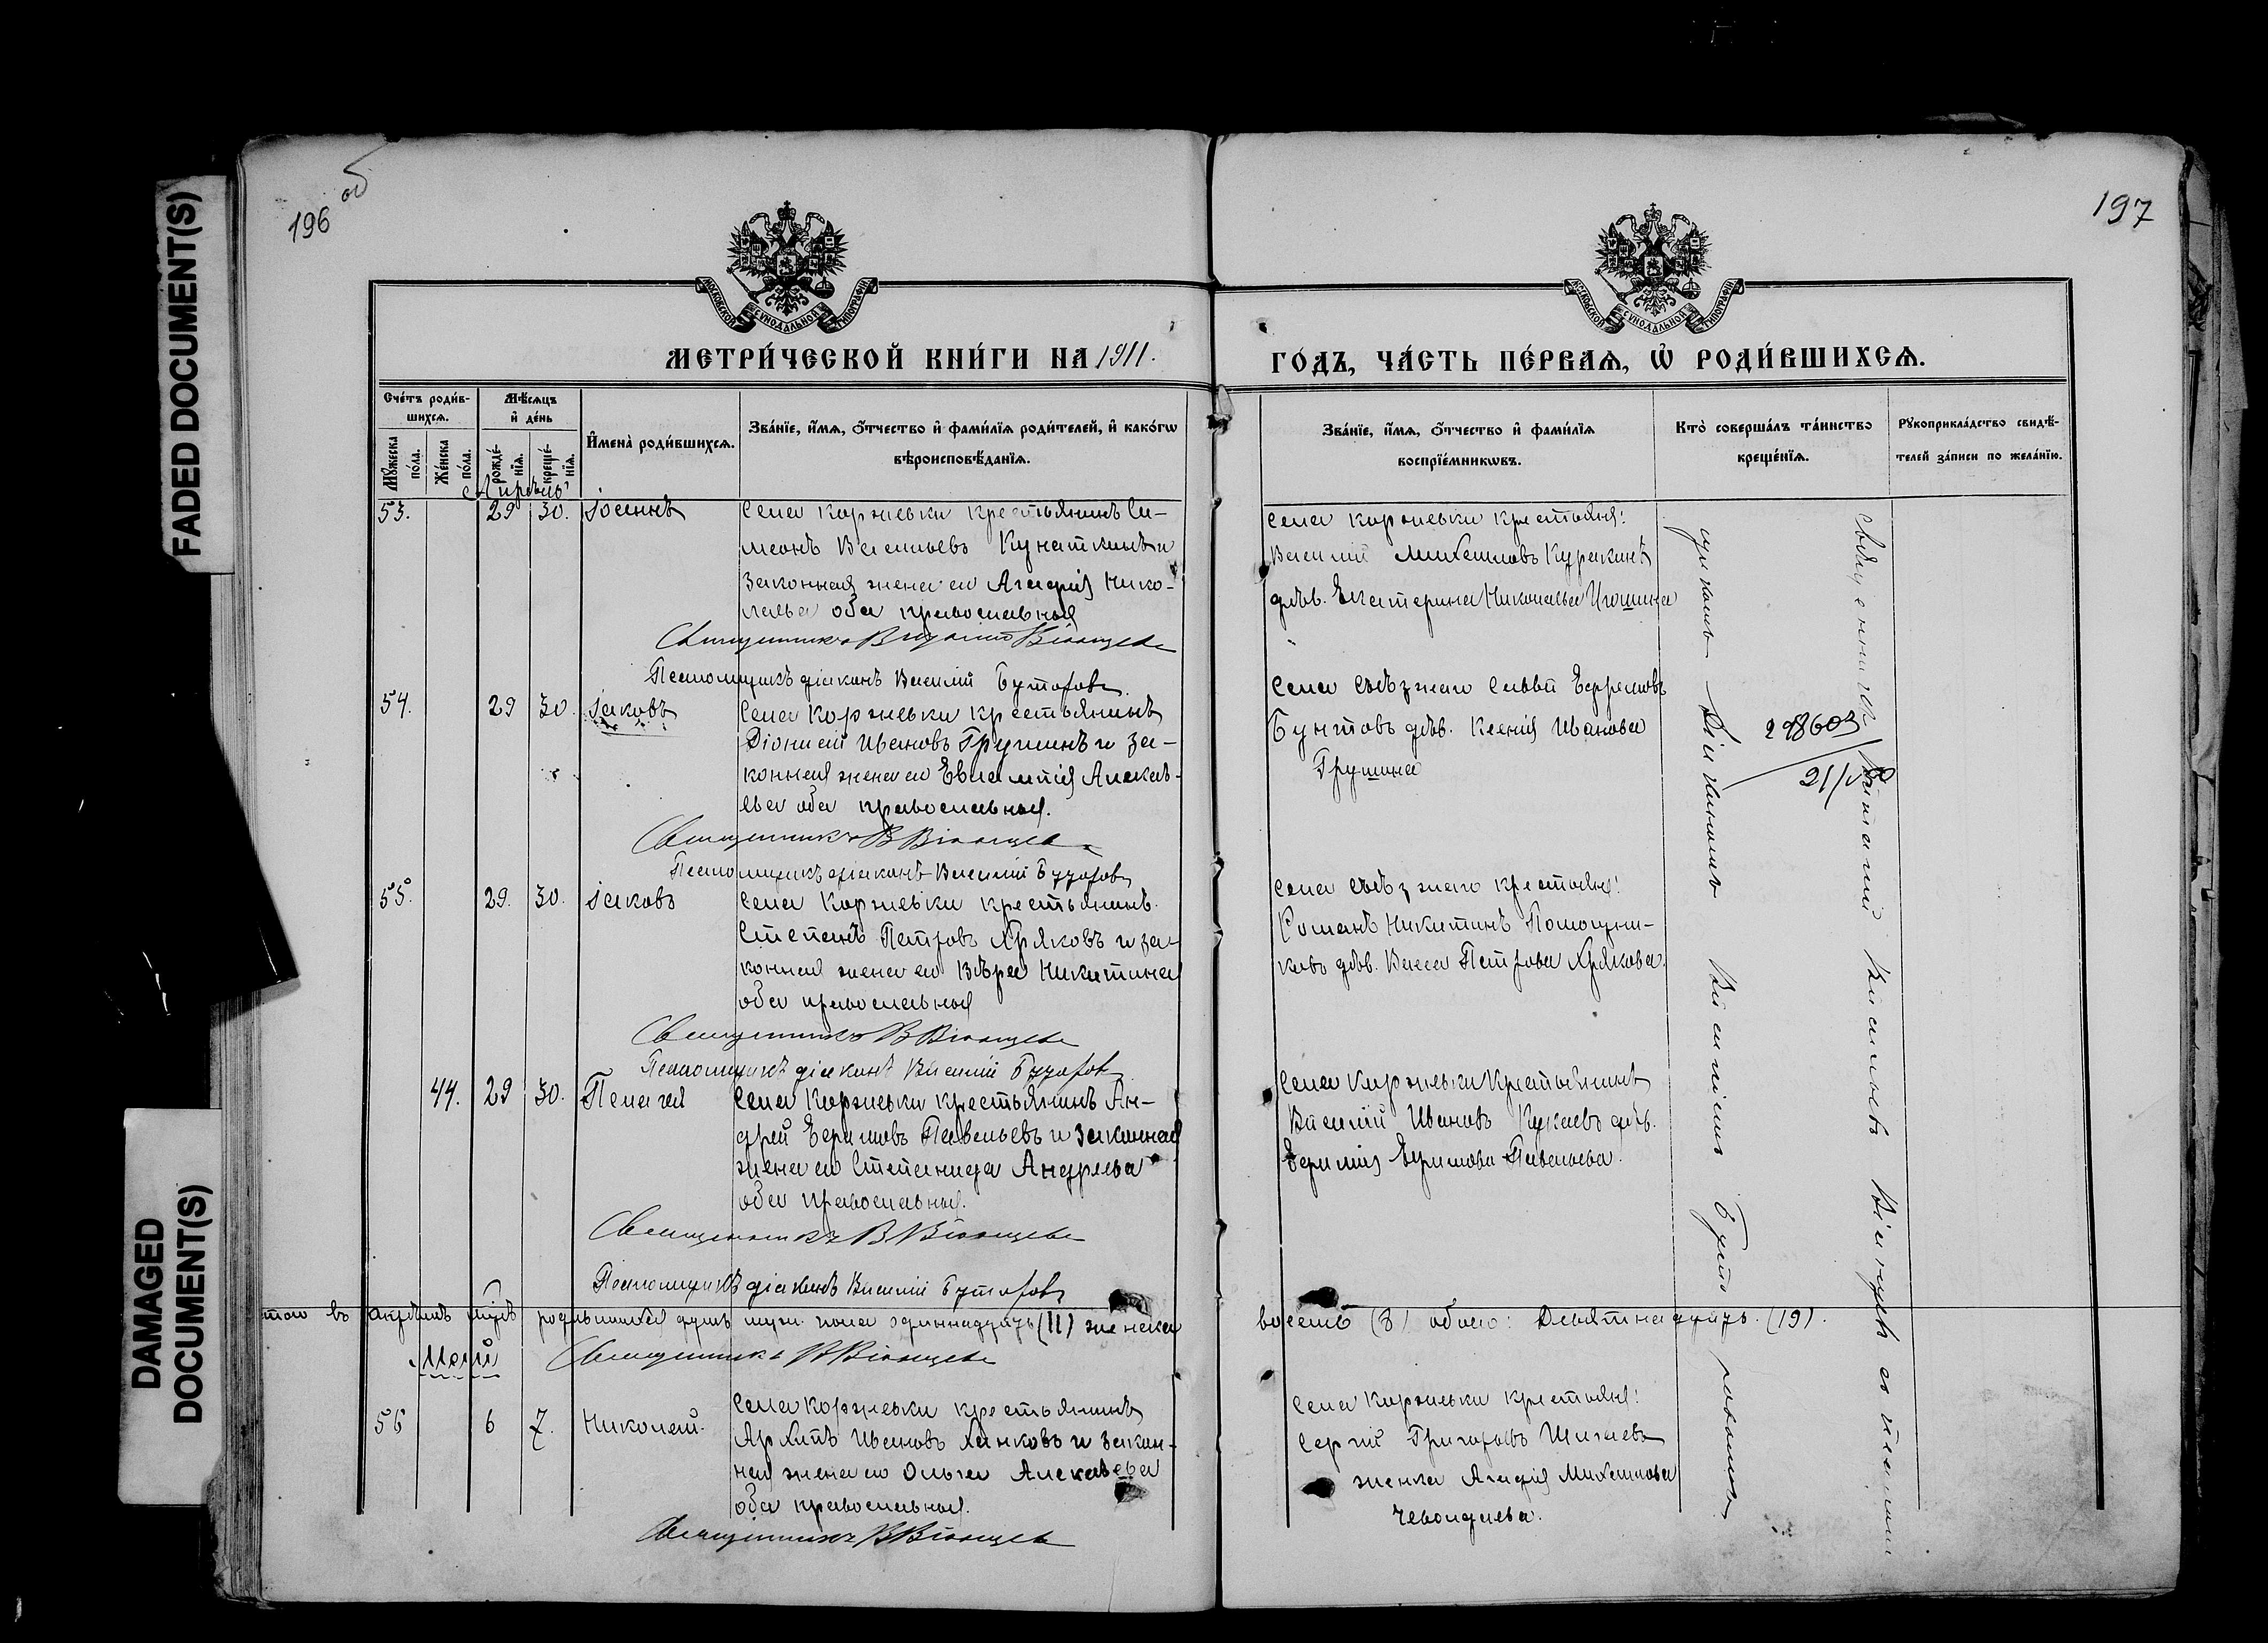 FADED DOCUMENT(S)
DAMAGED
DOCUMENT(S)
196 об
197
МОСКОВСКОЙ СѴНОДАЛЬНОЙ ТИПОГРАФІИ
МОСКОВСКОЙ СѴНОДАЛЬНОЙ ТИПОГРАФІИ
МЕТРИ́ЧЕСКОЙ КНИ́ГИ НА 1911.
ГО́ДЪ, ЧА́СТЬ ПЕ́РВАѦ, Ѡ҆ РОДИ́ВШИХСѦ.
Сче́тъ роди́в-
шихсѧ.
Мꙋ́жеска
по́ла.
Же́нска
по́ла.
Мѣ́сѧцъ
и҆ де́нь
рожде́-
нїѧ.
креще́-
нїѧ.
И҆мена̀ роди́вшихсѧ.
Зва́нїе, и҆́мѧ, ѻ҆́тчество и҆ фами́лїѧ роди́телей, и҆ како́гѡ
вѣроисповѣ́данїѧ.
Зва́нїе, и҆́мѧ, ѻ҆́тчество и҆ фами́лїѧ
воспрїе́мникѡвъ.
Кто̀ соверша́лъ та́инство
креще́нїѧ.
Рꙋкоприкла́дство свидѣ́-
телей за́писи по жела́нїю.
Апрѣль
53. 29 30. Іоаннъ
Села Коржевки крестьянинъ Си-
меонъ Васильевъ и
законная жена его Агафія Нико-
лаева оба православныя
Священникъ Віанцевъ
Псаломщикъ діаконъ Василій Буторовъ
Села Коржевки крестьяне:
Василій Михаиловъ Куракинъ
дѣв. Екатерина Николаева Игошина
54. 29 30. Іаковъ
Села Коржевки крестьянинъ
Діонисій Ивановъ Грушинъ и за-
конная жена его Евлампія Алексѣ-
ева оба православныя.
Священникъ В Віанцевъ
Псаломщикъ діаконъ Василій Буторовъ
Села Съѣзжаго Савва Ефремовъ
Бунтовъ дѣв. Ксенія Иванова
Грушина
298603
55. 29. 30. Іаковъ
Села Коржевки крестьянинъ
Степанъ Петровъ Хряковъ и за-
конная жена его Вѣра Никитина
оба православныя
Священникъ В Віанцевъ
Псаломщикъ діаконъ Василій Буторовъ
Села Съѣзжаго крестьяне:
Романъ Никитинъ Помощни-
ковъ дѣв. Васса Петрова Хрякова.
44. 29 30. Пелагея
Села Коржевки крестьянинъ Ан-
дрей Ефимовъ Павельевъ и законная
жена его Степанида Андреева
оба православныя.
Священникъ В Віанцевъ
Псаломщикъ діаконъ Василій Буторовъ
Села Коржевки крестьянинъ
Василій Ивановъ дѣв.
Ефимія Ефимова Павельева.
того въ апрѣлѣ мцѣ родившихся душъ муж. пола одиннадцать (11) женска
восемь (8) обоего: девятнадцать. (19).
Май
Священникъ В Віанцевъ
56 6 7. Николай.
Села Коржевки крестьянинъ
Архипъ Ивановъ Ханковъ и закон-
ная жена его Ольга Алексѣева
оба православныя.
Священникъ В Віанцевъ
Села Коржевки крестьяне:
Сергій Григорьевъ Шигаевъ
женка Агафія Михаилова
Священникъ Виталій Васильевъ Віанцевъ съ псалом
щикомъ діакономъ Василіемъ